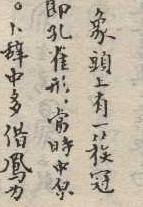 象頭上有一簇冠
即孔雀形，當時中原
。卜辭中多借鳳为